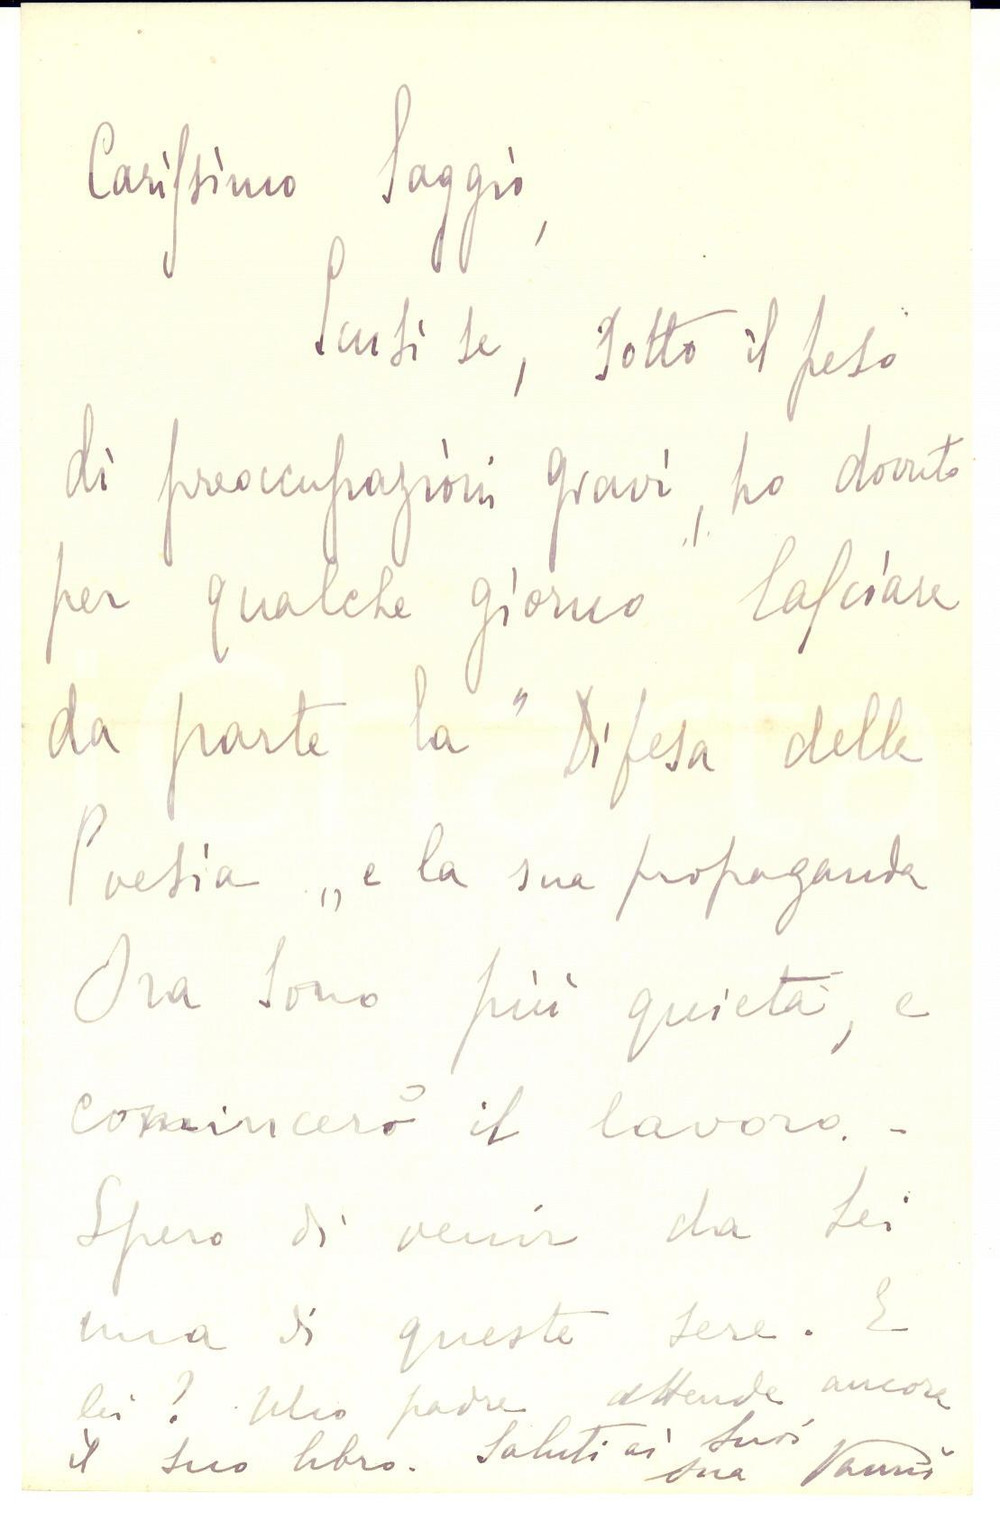 Carissimo Saggio,
Scusi se, sotto il peso
di preoccupazioni gravi, ho dovuto
per qualche giorno lasciare
da parte la "Difesa della
Poesia„ e la sua propaganda
Ora sono più quieta, e
comincerò il lavoro. -
Spero di venir da Lei
una di queste sere. E
lei? Mio padre attende ancora
il suo libro. Saluti ai Suoi
sua